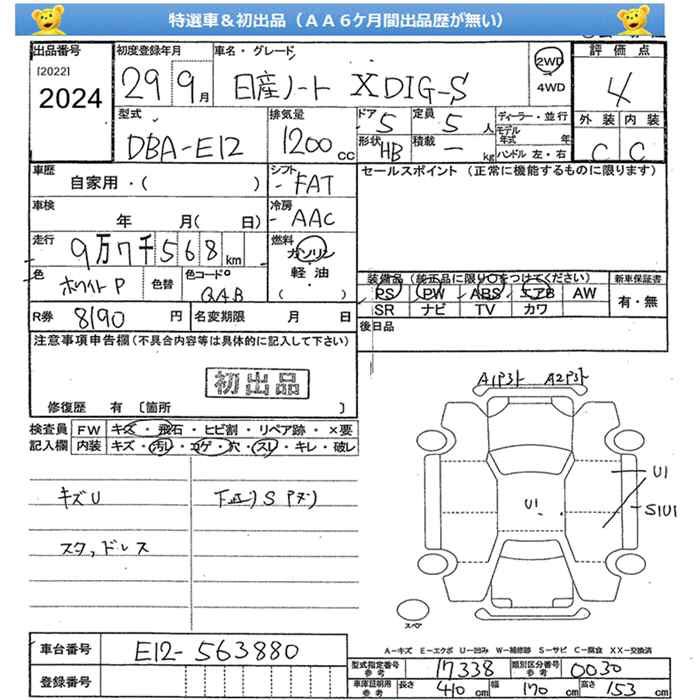 特選車＆初出品（ＡＡ６ケ月間出品歴が無い）
出品番号 初度登録年月 車名・グレード 評価点
[2022] 2024 29 9月 日産ノート X DIG-S 2WD 4WD 4
型式 排気量 ドア 定員 ディーラー・並行 外装 内装
DBA-E12 1200cc 5 5人 モデル年式 年 C C
形状 HB 積載 - kg ハンドル 左・右
車歴 自家用・( ) シフト - FAT セールスポイント（正常に機能するものに限ります）
車検 年 月( 日) 冷房 - AAC
走行 9万7千568km 燃料 ガソリン 軽・油 ( )
色 ホワイトP 色替 色コードNo QAB
装備品（純正品に限り○をつけてください） 新車保証書
PS PW ABS エアB AW 有・無
SR ナビ TV カワ
R券 8190円 名変期限 月 日 後日品
注意事項申告欄(不具合内容等は具体的に記入して下さい)
初出品
修復歴 有〔箇所 〕
検査員 FW キズ・飛石・ヒビ割・リペア跡・×要
記入欄 内装 キズ・汚レ・コゲ・穴・スレ・キレ・破レ
キズU 下廻りS
スタッドレス
A1 A2
U1
S1U1
U1
スペア
A－キズ E－エクボ U－凹み W－補修跡 S－サビ C－腐食 XX－交換済
車台番号 E12-563880
登録番号
型式指定番号 参考 17338 類別区分番号 参考 0030
車庫証明用 参考 長さ 410cm 幅 170cm 高さ 153cm